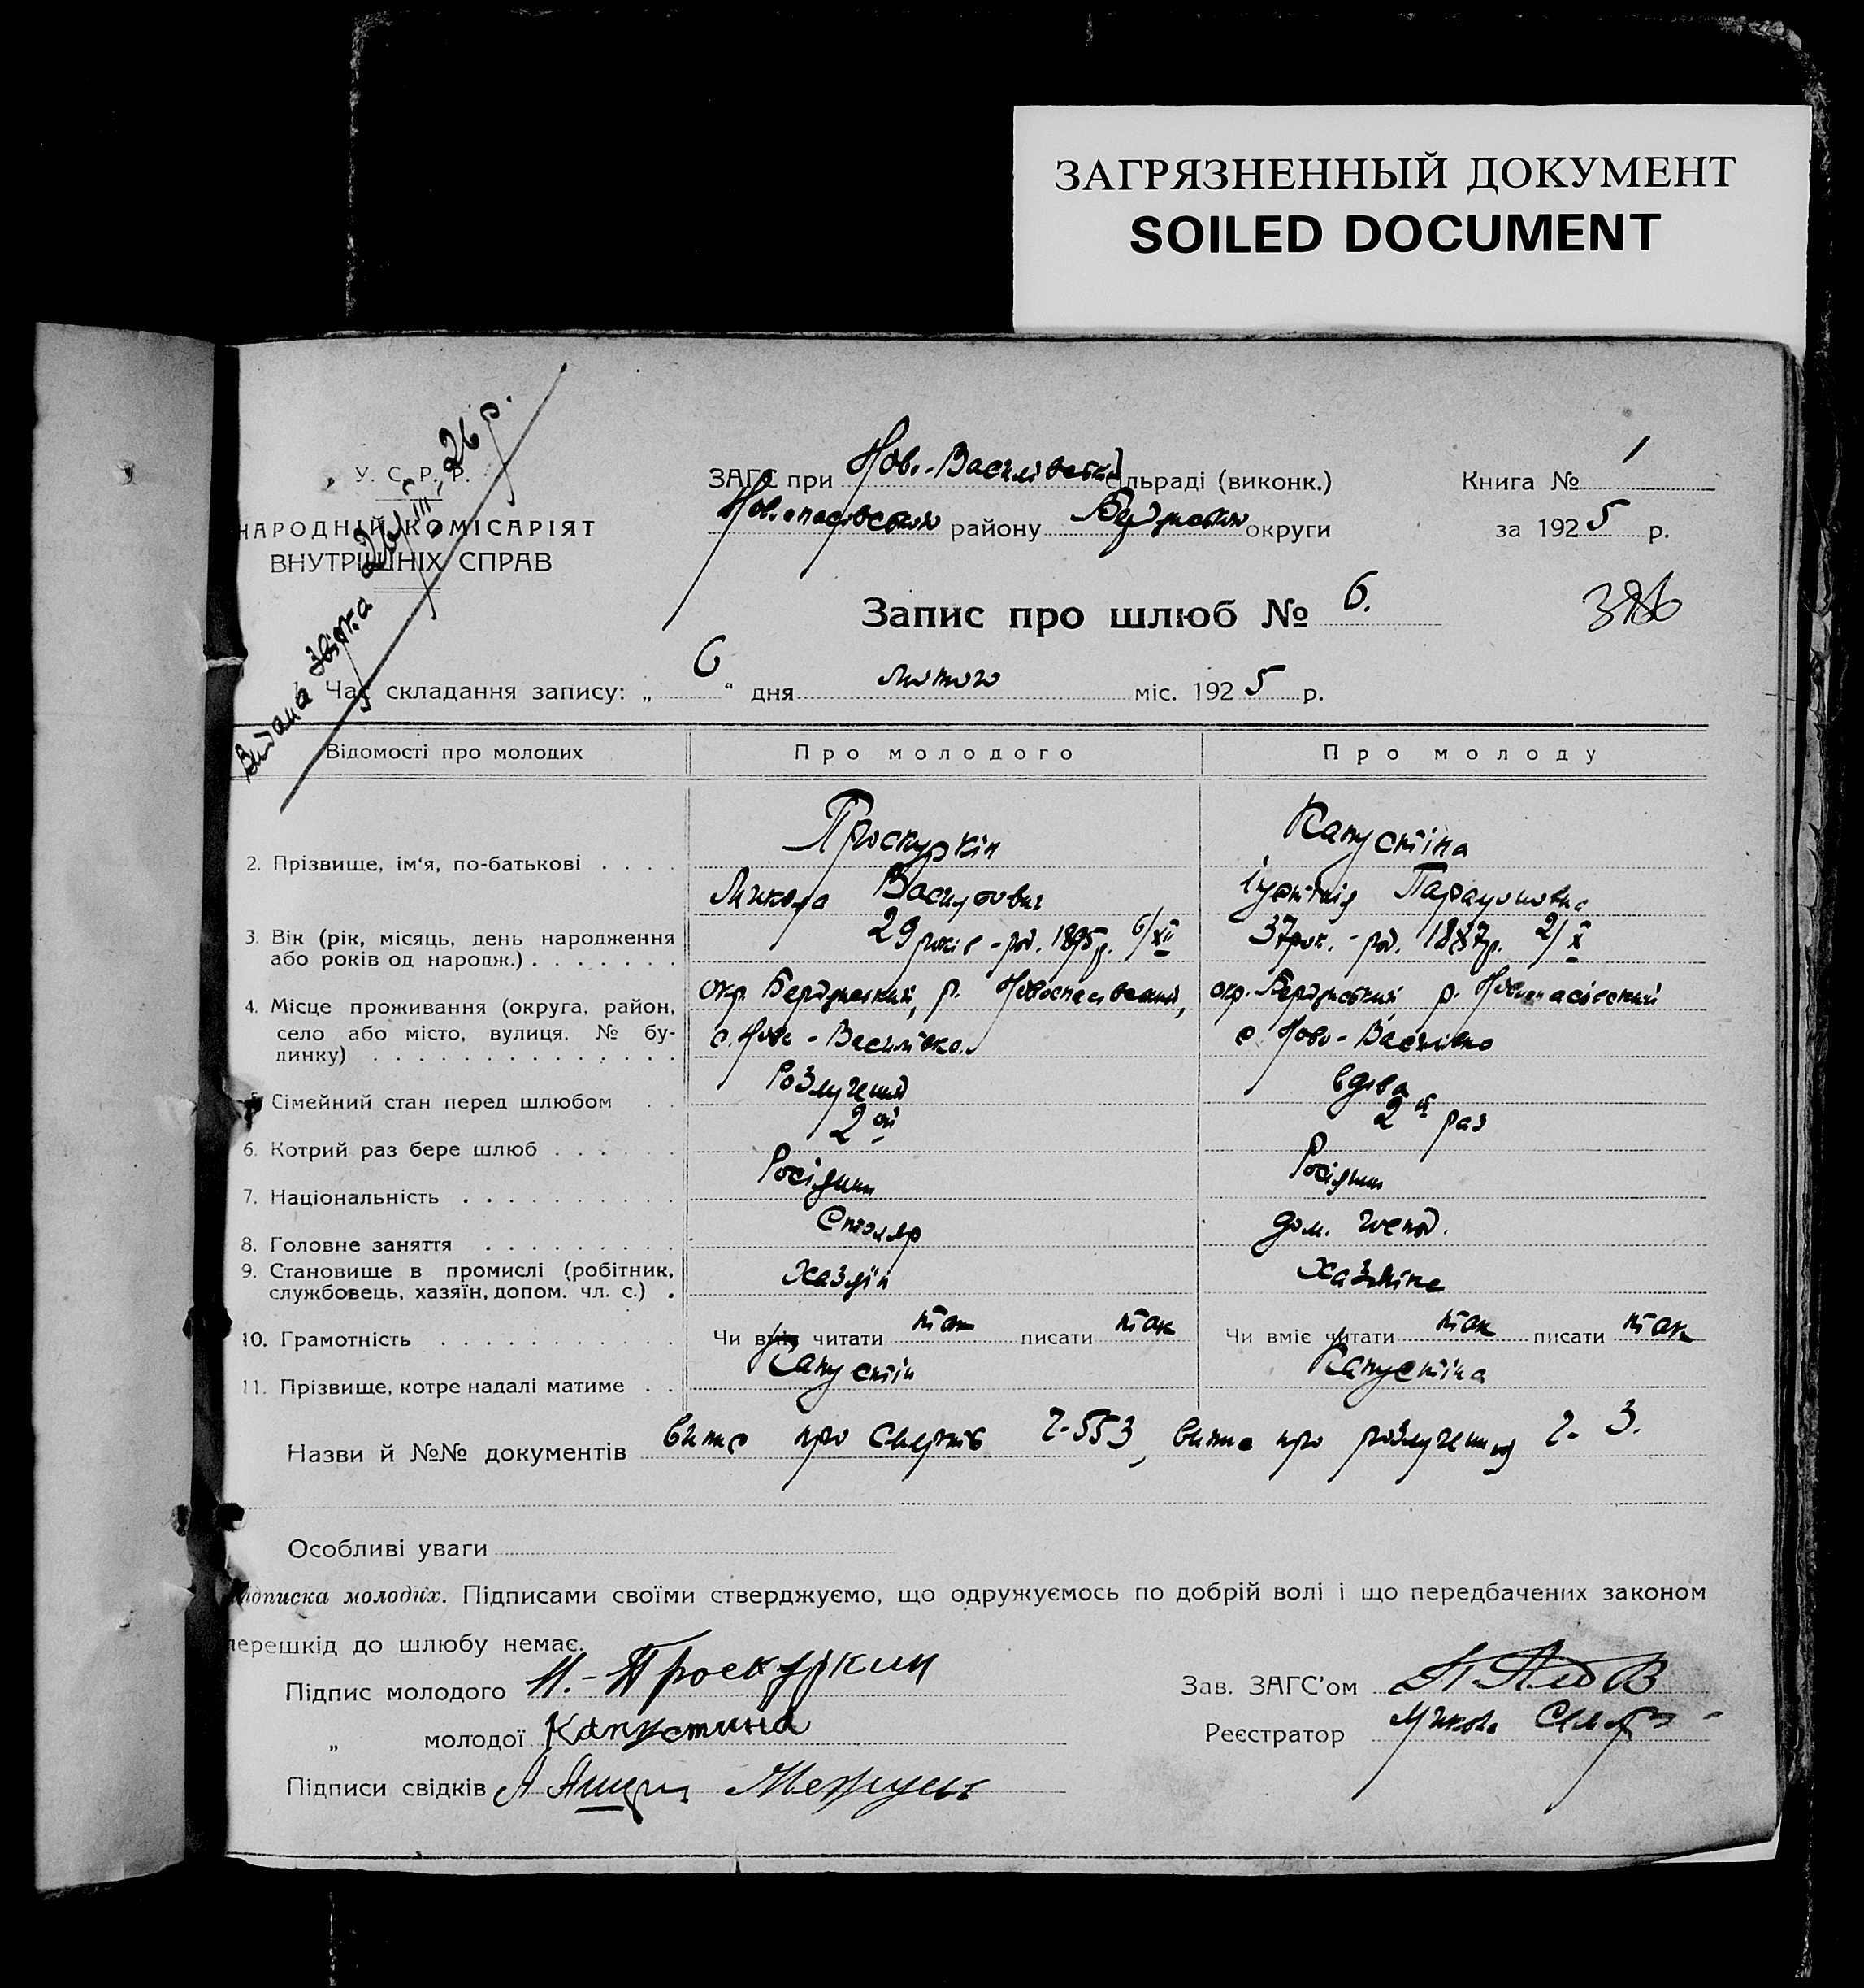 ЗАГРЯЗНЕННЫЙ ДОКУМЕНТ
SOILED DOCUMENT
Видана звірка 26/III-26 р.
У. С. Р. Р.
НАРОДНІЙ КОМІСАРІЯТ
ВНУТРІШНІХ СПРАВ
ЗАГС при Ново-Василівській сільраді (виконк.)
Новоспасівський району Бердянської округи
Книга № 1
за 1925 р.
Запис про шлюб № 6.
386
Час складання запису: „6“ дня лютого міс. 1925 р.
Відомості про молодих Про молодого Про молоду
2. Прізвище, ім'я, по-батькові . . . Проскуркін Капустіна
Микола Василович Парамоновна
3. Вік (рік, місяць, день народження 29 років - род. 1895 р. 6/XII 37 рок. - род. 1887 р. 2/X
або років од народж.) . . . . . . .
4. Місце проживання (округа, район, окр. Бердянський, р. Новоспасівський, окр. Бердянський р. Новоспасівский
село або місто, вулиця, № бу- с. Ново-Василівка с Ново-Васілівка
динку) . . . . . . . . . . . . .
5. Сімейний стан перед шлюбом . . Розлучений вдова
6. Котрий раз бере шлюб . . . . . . 2ой 2й раз
7. Національність . . . . . . . . . . Росіянин Росіянин
8. Головне заняття . . . . . . . . . Столяр дом. господ.
9. Становище в промислі (робітник, Хазяїн Хазяйка
службовець, хазяїн, допом. чл. с.) .
10. Грамотність . . . . . . . . . . . Чи вміє читати так писати так Чи вміє читати так писати так
11. Прізвище, котре надалі матиме . . Капустін Капустіна
Назви й №№ документів випис про смертъ 2-553, випис про розлучення 2-3.
Особливі уваги
підписка молодих. Підписами своїми стверджуємо, що одружуємось по добрій волі і що передбачених законом
перешкід до шлюбу немає.
Підпис молодого Н.-Проскуркин
„ молодої Капустина
Підписи свідків
Зав. ЗАГС'ом
Реєстратор